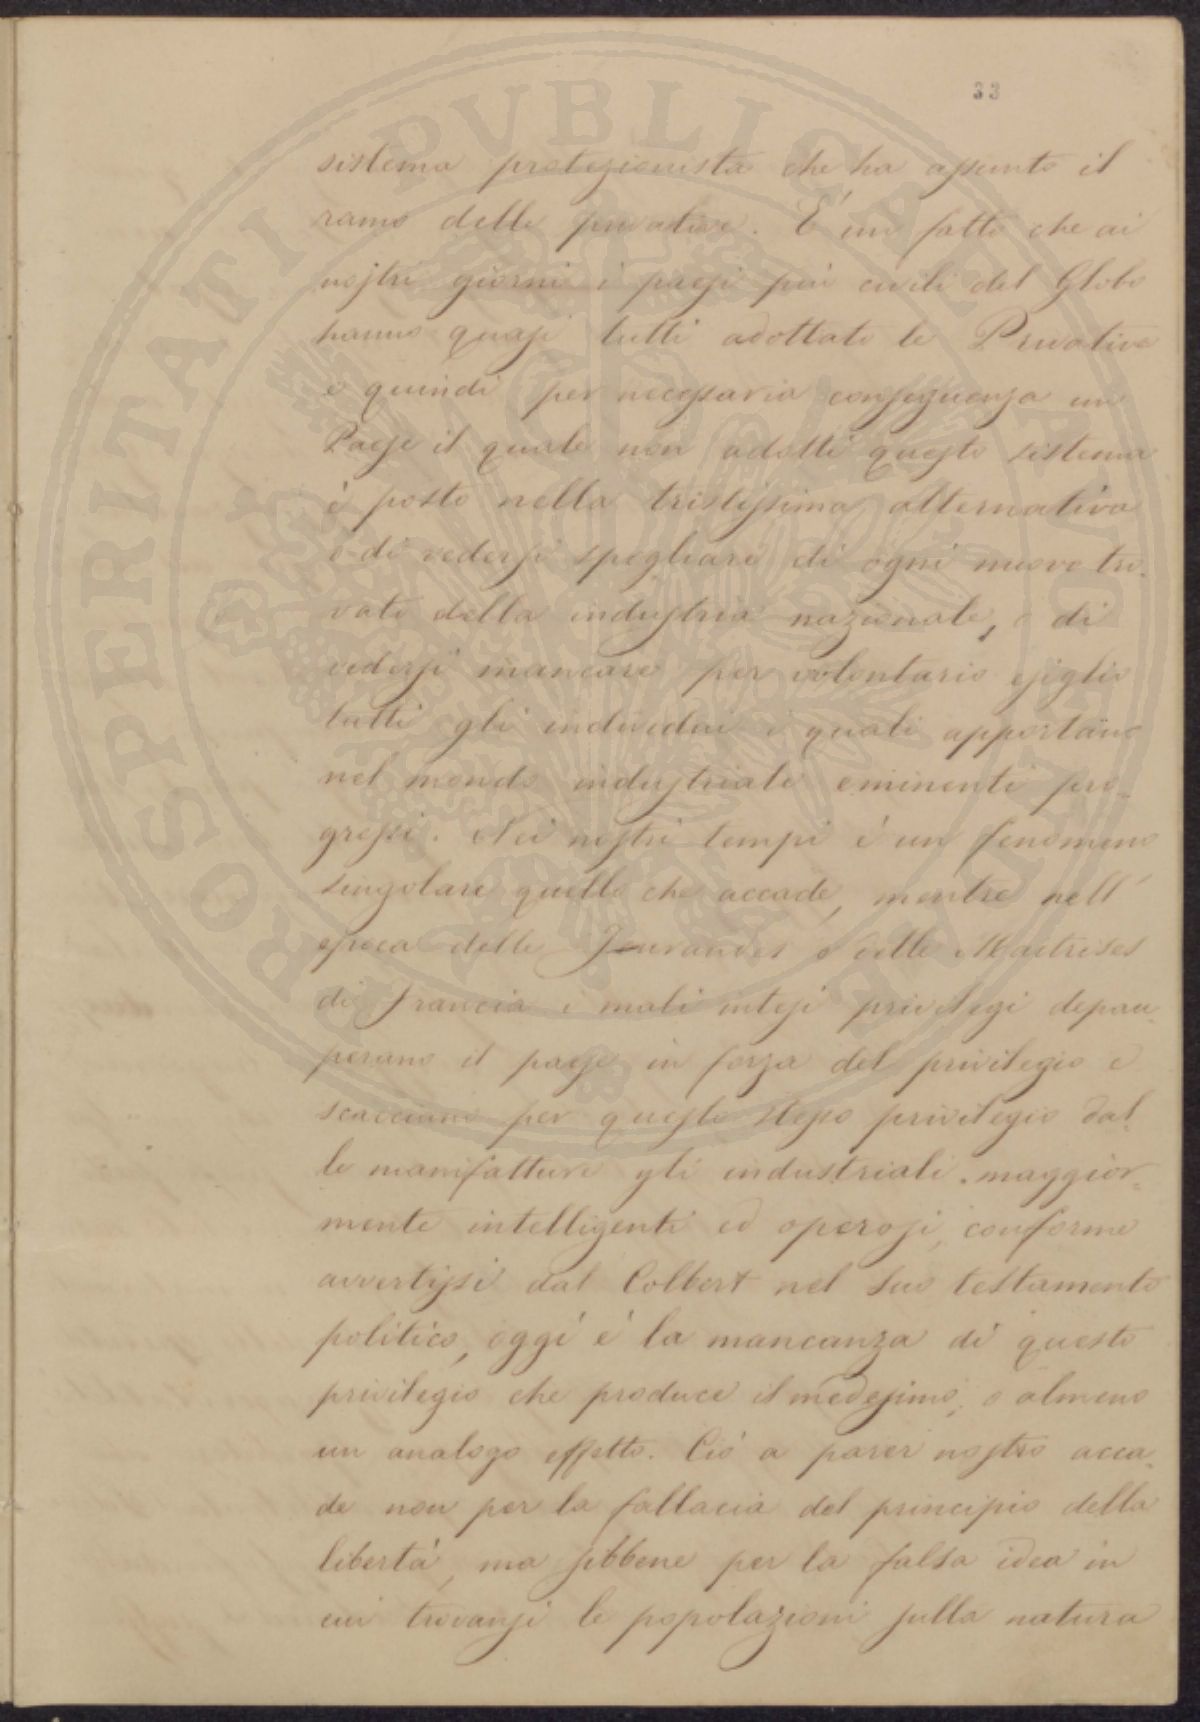 33
sistema protezionista che ha assunto il
ramo delle privative. È un fatto che ai
nostri giorni i paesi più civili del Globo
hanno quasi tutti adottato le Privative
e quindi per necessaria conseguenza un
Paese il quale non adotti questo sistema
è posto nella tristissima alternativa
o di vedersi spogliare di ogni nuovo tro-
vato della industria nazionale, o di
vedersi mancare per volontario esiglio
tutti gli individui i quali apportano
nel mondo industriale eminenti pro-
gressi. Nei nostri tempi è un fenomeno
singolare quello che accade, mentre nell'
epoca delle Jourandes e delle Maitrises
di Francia i mali intesi privilegi depau-
perano il paese in forza del privilegio e
scacciano per questo stesso privilegio dal-
le manifatture gli industriali maggior-
mente intelligenti ed operosi, conforme
avvertissi dal Colbert nel suo testamento
politico, oggi è la mancanza di questo
privilegio che produce il medesimo, o almeno
un analogo effetto. Ciò a parer nostro acca-
de non per la fallacia del principio della
libertà, ma sibbene per la falsa idea in
cui trovansi le popolazioni sulla natura
PROSPERITATI PVBLICAE AVGENDAE